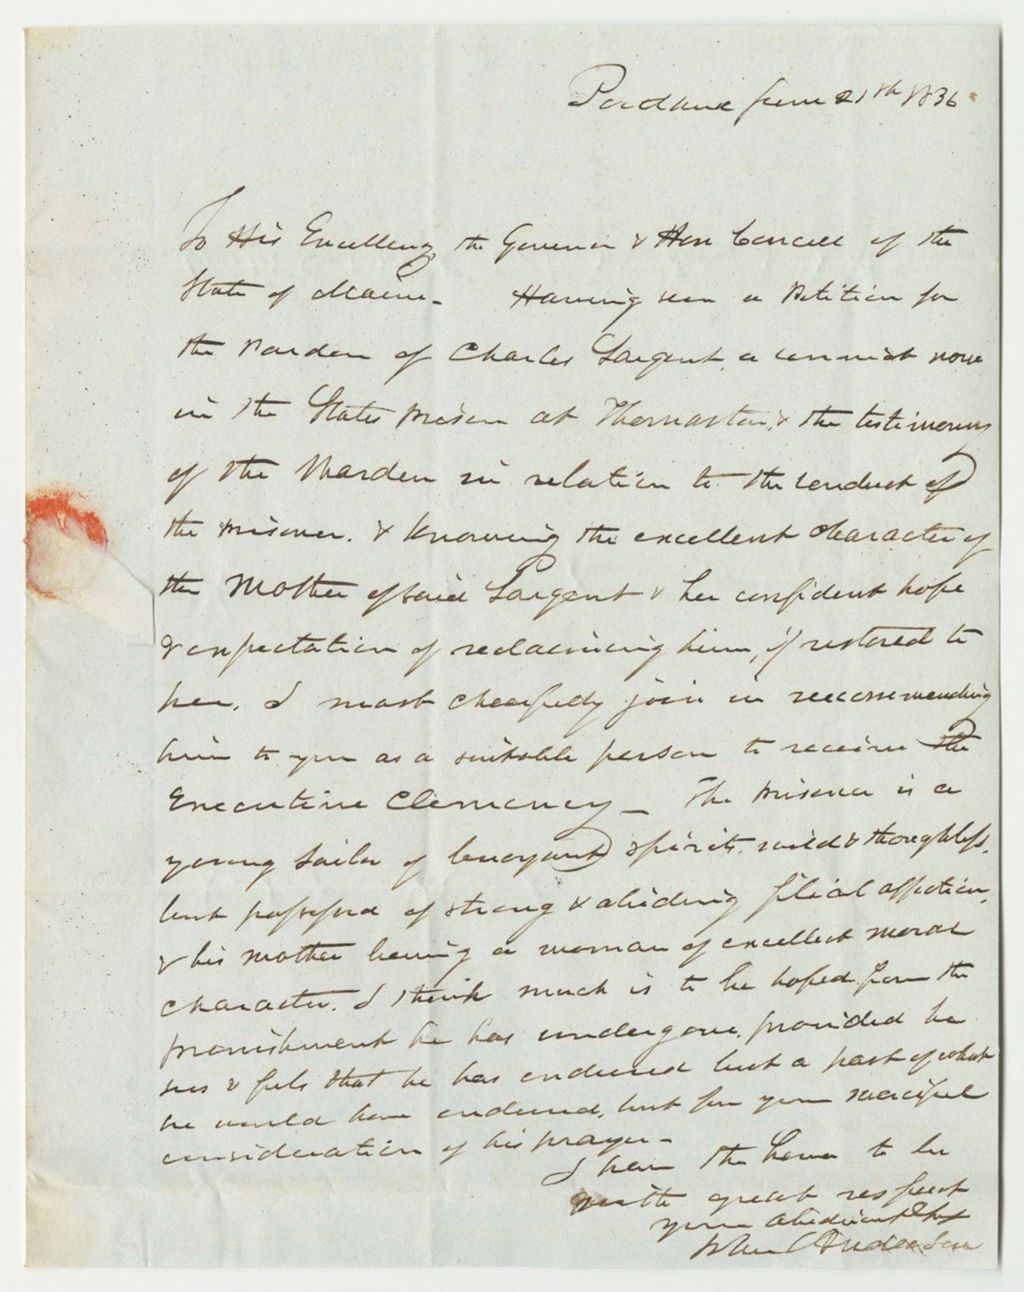 Portland June 21th 1836
To His Excellency the Governor & Hon Council of the
State of Maine - Having seen a Petition for
the Pardon of Charles Sargent, a convict now
in the States prison at Thomaston, & the testimony
of the Warden in relation to the conduct of
the prisoner. & knowing the excellent character of
the Mother of said Sargent & her confident hope
& expectation of reclaiming him, if restored to
her, I most cheerfully join in recommending
him to you as a suitable person to receive the
Executive Clemency - The prisoner is a
young sailor of buoyant spirits, wild & thoughtless,
but possessed of strong & abiding filial affection,
& his mother being a woman of excellent moral
character. I think much is to be hoped from the
punishment he has undergone, provided he
sees & feels that he has endured but a part of what
he would have endured, but for your merciful
consideration of his prayer -
I have the honor to be
with great respect
your obedient
John Anderson